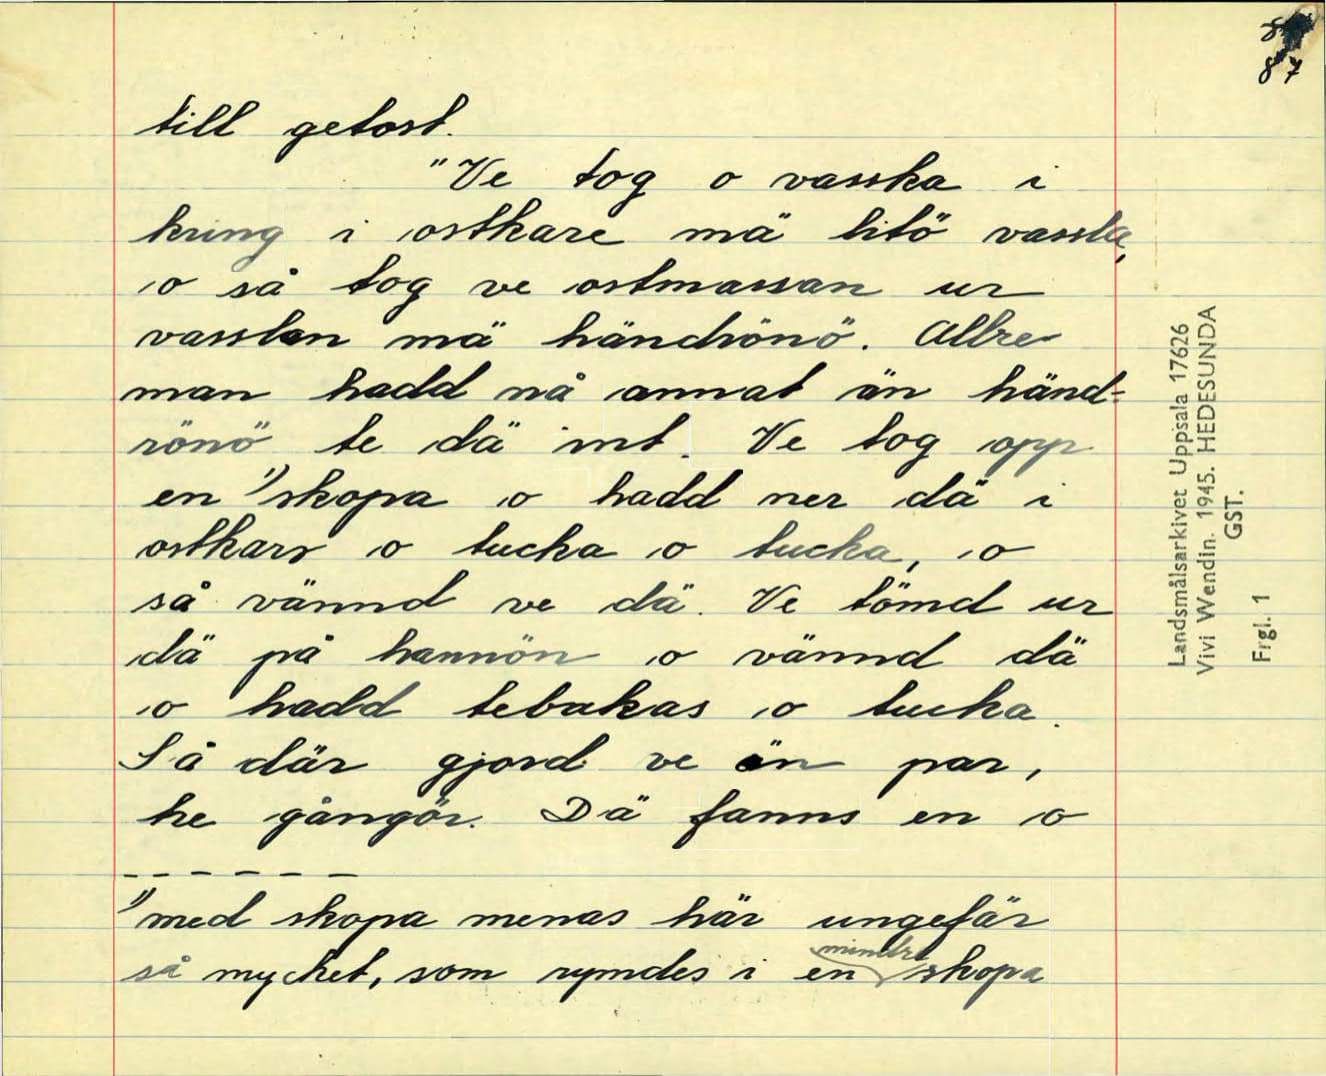 87
till getost.
"Ve tog o vasska i
kring i ostkare mä litö vassla,
o så tog ve ostmassan ur
vasslan mä händrönö. Allre
man hadd nå annat än händ-
rönö te dä int. Ve tog opp
en 1) skopa o hadd ner dä i
ostkarr o tucka o tucka, o
så vännd ve dä. Ve tömd ur
dä på hannön o vännd dä
o hadd tebakas o tucka.
Så där gjord ve än par,
he gångör. Dä fanns en o
------
1) med skopa menas här ungefär
så mycket, som rymdes i en mindre skopa
Landsmålsarkivet Uppsala 17626
Vivi Wendin. 1945. HEDESUNDA
GST.
Frgl. 1